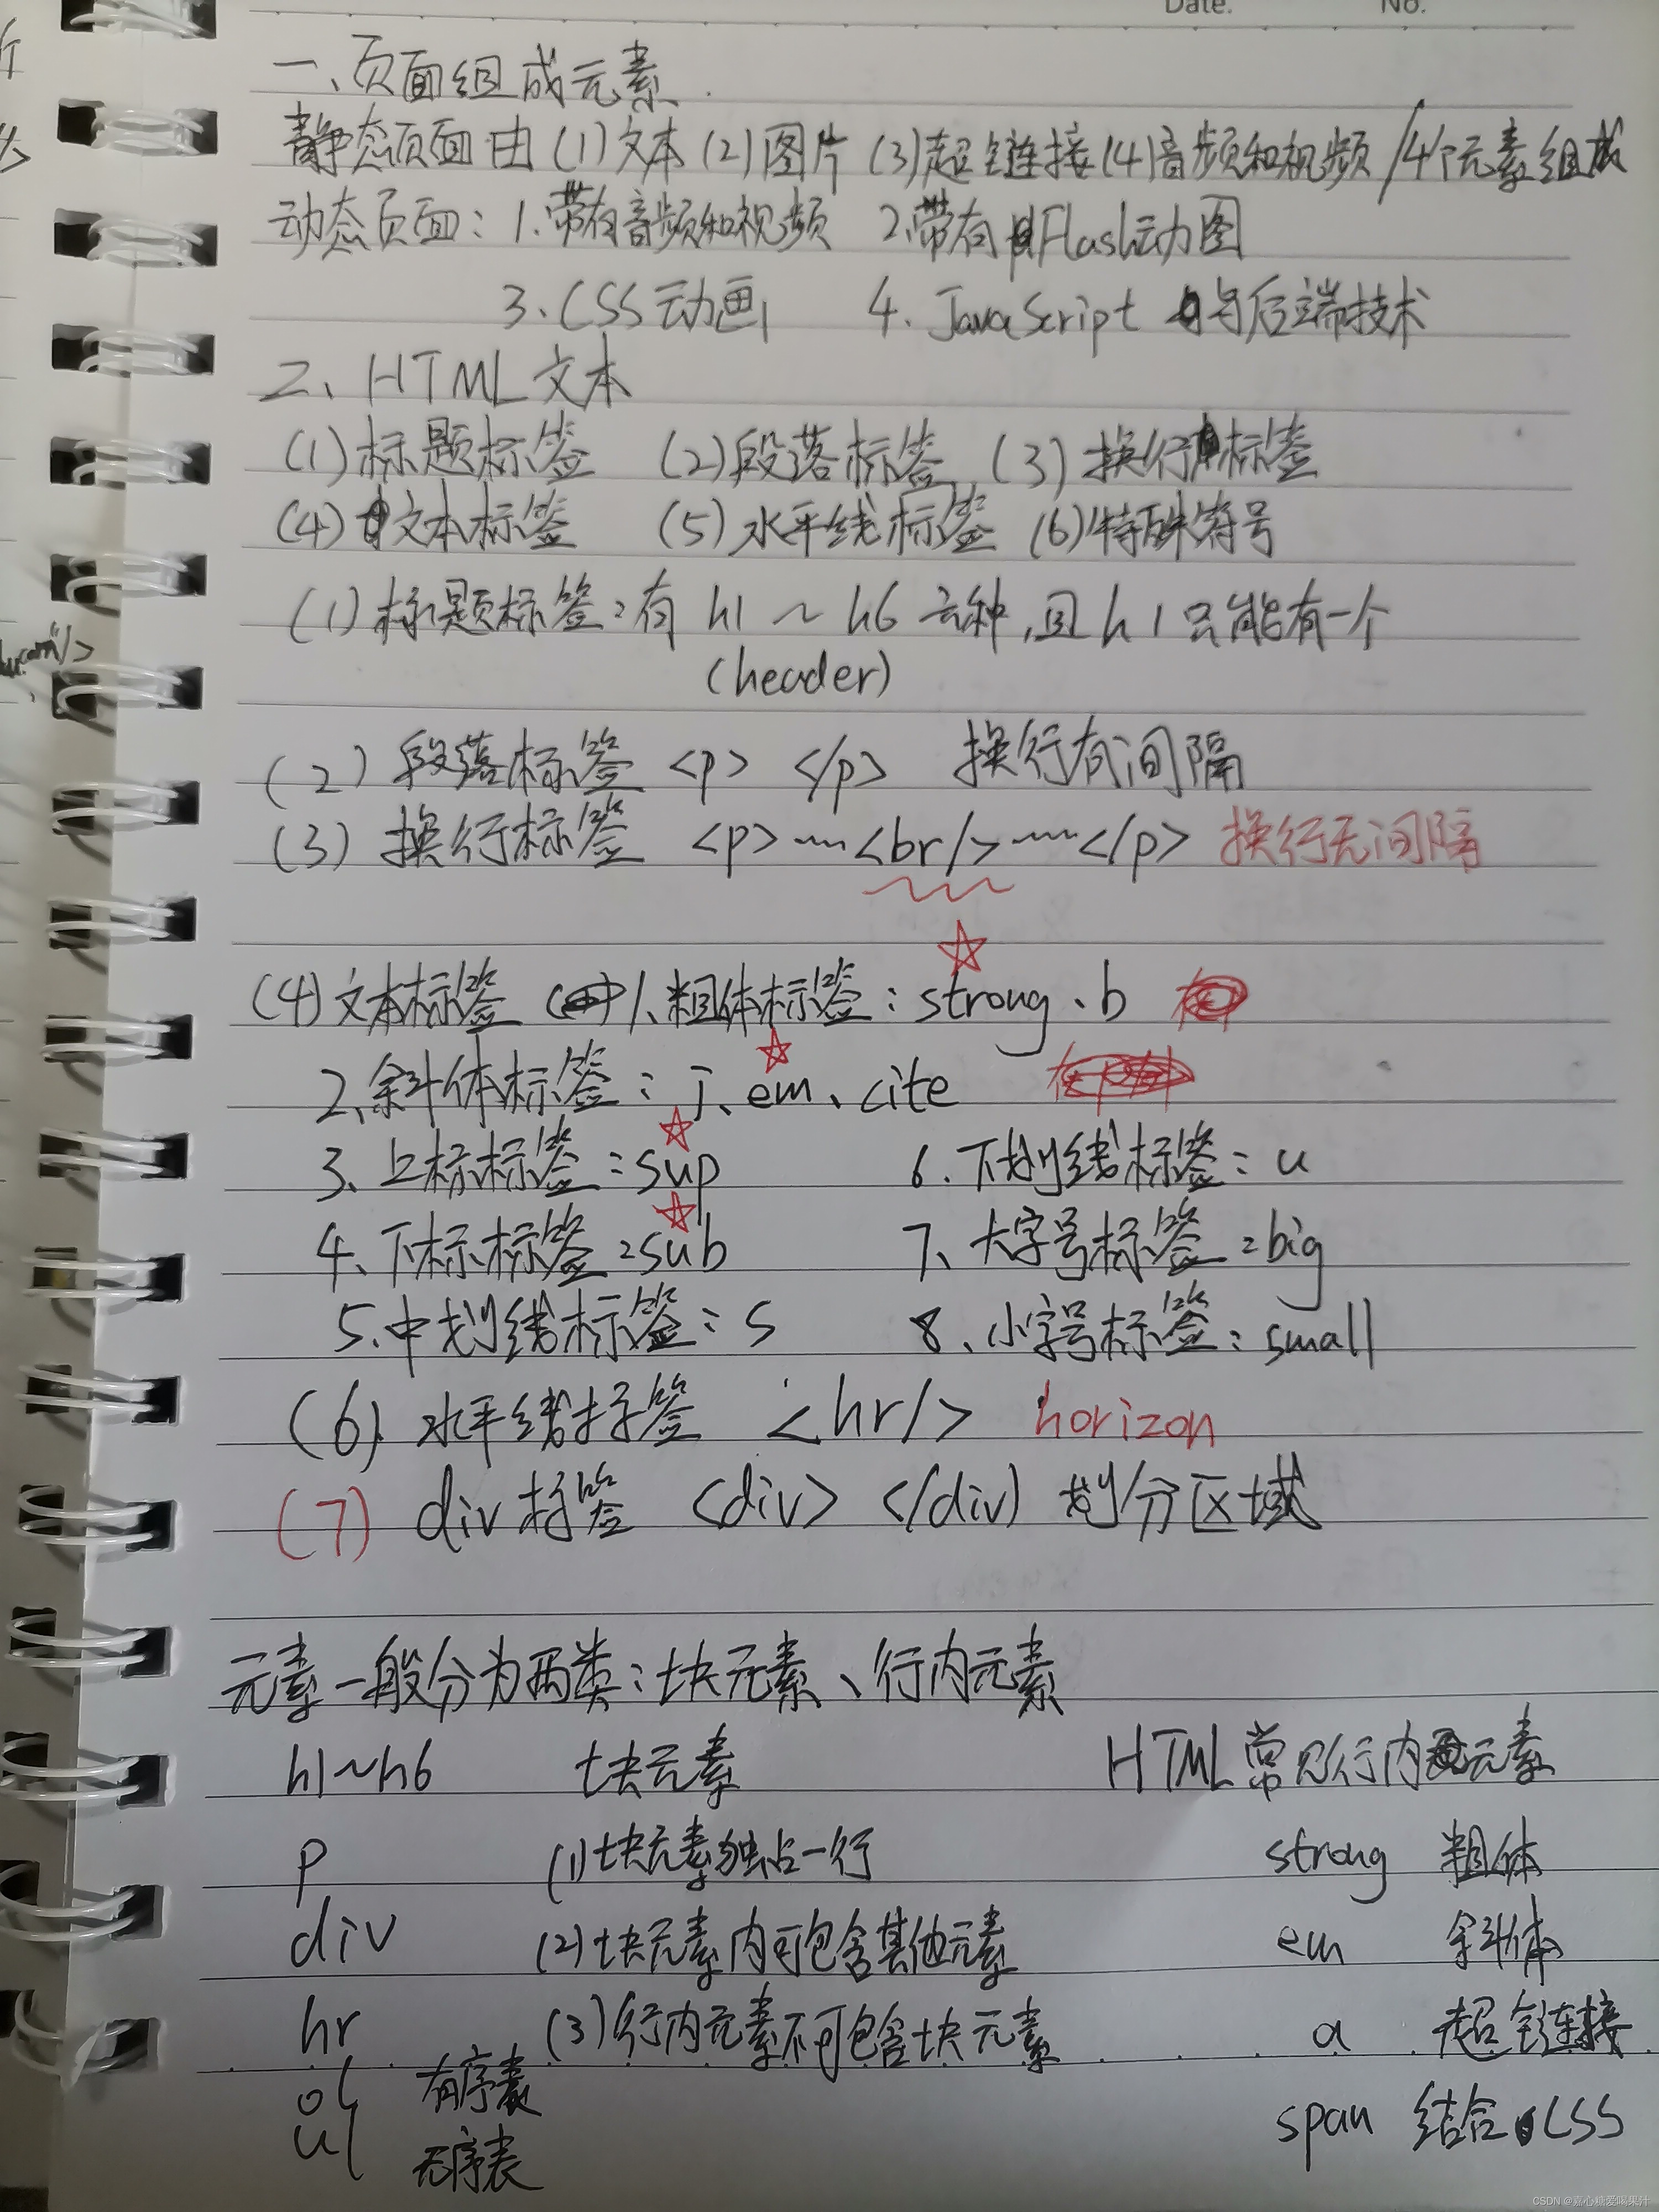 Date. No.
一、页面组成元素
静态页面由(1)文本(2)图片(3)超链接(4)音频和视频/4个元素组成
动态页面：1.带有音频和视频 2.带有Flash动图
3.CSS动画 4.JavaScript与后端技术
二、HTML文本
(1)标题标签 (2)段落标签 (3)换行标签
(4)文本标签 (5)水平线标签 (6)特殊符号
(1)标题标签：有h1～h6六种，且h1只能有一个
(header)
(2)段落标签 <p> </p> 换行有间隔
(3)换行标签 <p>~~<br/>~~</p> 换行无间隔
(4)文本标签 1、粗体标签：strong、b
2、斜体标签：i、em、cite
3、上标标签：sup 6.下划线标签：u
4、下标标签：sub 7、大字号标签：big
5、中划线标签：s 8、小字号标签：small
(6)水平线标签 <hr/> horizon
(7) div标签 <div> </div) 划分区域
元素一般分为两类：块元素、行内元素
h1~h6 块元素 HTML常见行内元素
p (1)块元素独占一行 strong 粗体
div (2)块元素内可包含其他元素 em 斜体
hr (3)行内元素不可包含块元素 a 超链接
ol 有序表 span 结合CSS
ul 无序表
CSDN @嘉心糖爱喝果汁